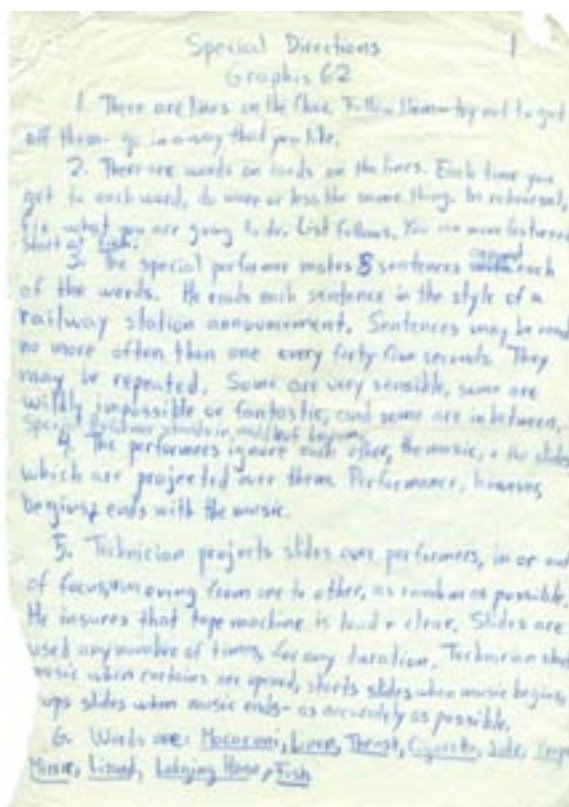 Special Directions 1
Graphis 62
1. There are lines on the floor. Follow them - try not to get
off them - go in a way that you like.
2. There are words on cards on the lines. Each time you
get to each word, do more or less the same thing. In rehearsal,
fix what you are going to do. List follows. You can move
start at Fish.
3. The special performer makes 5 sentences each
of the words. He reads each sentence in the style of a
railway station announcement. Sentences may be read
no more often than one every forty-five seconds. They
may be repeated. Some are very sensible, some are
wildly impossible or fantastic, and some are in between.
Special performer
4. The performers ignore each other, the music, + the slides
which are projected over them. Performance, however,
begins + ends with the music.
5. Technician projects slides over performers, in or out
of focus, moving from one to other, as random as possible.
He insures that tape machine is loud + clear. Slides are
used any number of times, for any duration. Technician
music when curtains are opened, starts slides when music begins,
slides when music ends - as accurately as possible.
6. Words are: Macaroni, Linen, Cigarette,
Mirror, Lizard, Lodging House, Fish